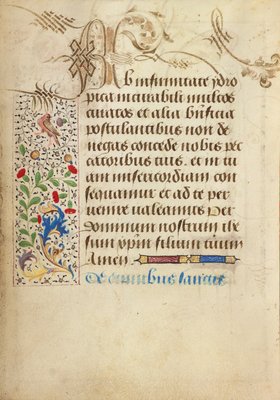 Ab infirmitate ydro
pica incurabili multos
curatos et alia bn̄ficia
postulantibus non de
negas concede nobis pec
catoribus tuis. et in tu
am misericordiam con
sequamur et ad te per
uenire ualeamus Per
dominum nostrum ihe
sum xp̄m filium tuum
Amen
De omnibus sanctis